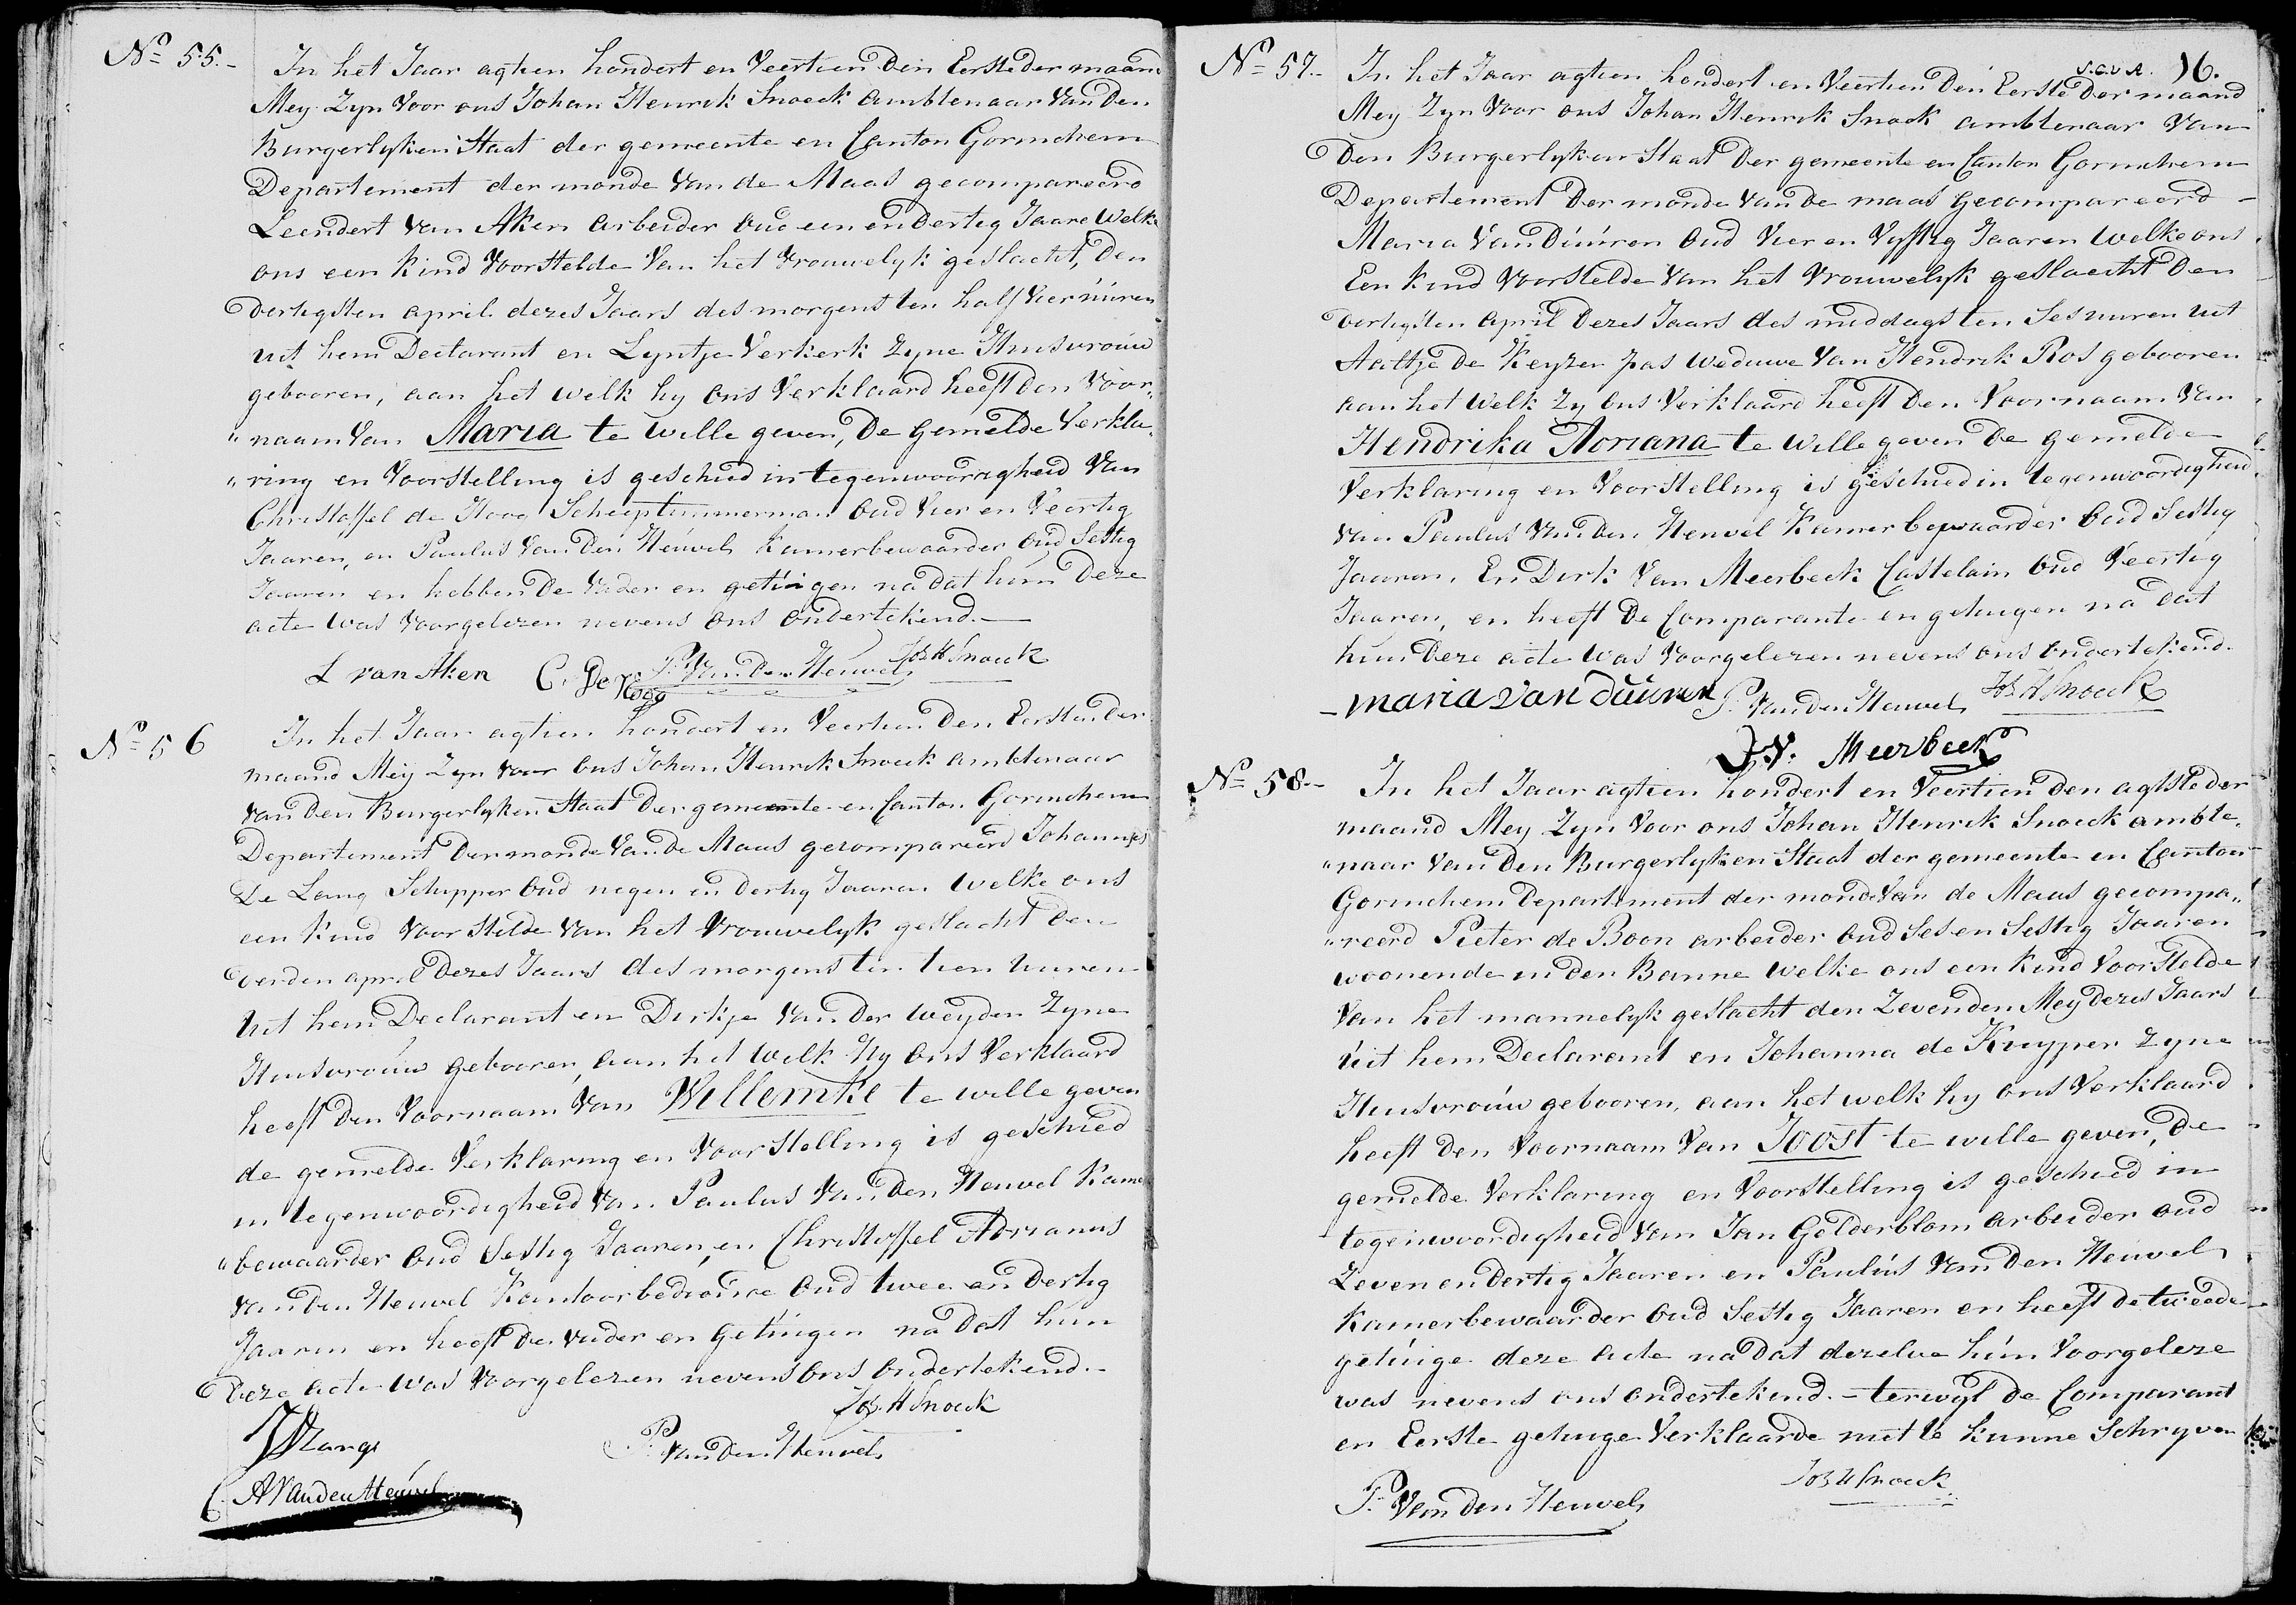 No 55.-
In het Jaar agtien hondert en Veertien Den Eerste der maand
Mey Zyn Voor ons Johan Henrik Snoeck Amblenaar Van Den
Burgerlyken Staat der gemeente en Canton Gorinchem
Departement der monde Van de Maas gecompareerd
Leendert Van Aken Arbeider Oud een en dertig Jaare Welke
ons een Kind Voorstelde Van het Vrouwelyk geslacht, Den
dertigsten april dezes Jaars des morgens ten half Vier uuren
uit hem Declarant en Lyntje Verkerk Zyne Huisvrouw
gebooren, aan het welk hy ons Verklaard heeft Den Voor„
„naam Van Maria te Wille geven, De Gemelde Verkla„
„ring en Voorstelling is geschied in tegenwoorigheid Van
Christoffel de Hoog Scheeptimmerman Oud Vier en Veertig
Jaaren, en Paulus Van Den Heuvel Kamerbewaarder Oud Sestig
Jaaren en hebben De Vader en getuigen na dat hun Deze
acte was Voorgelezen nevens ons ondertekend.-
L van Aken C. De Hoog P. Van Den Heuvel Joh H Snoeck
No 56
In het Jaar agtien hondert en Veertien Den Eersten der
maand Mey Zyn Voor ons Johan Henrik Snoeck Amblenaar
Van Den Burgerlyken Staat Der gemeente en Canton Gorinchem
Departement Der monde Van De Maas gecompareerd Johannes
De Lang Schipper Oud negen en dertig Jaaren Welke ons
een Kind Voorstelde Van het Vrouwelyk geslacht Den
april Dezes Jaars des morgens ten tien uuren
uit hem Declarant en Dirkje Van Der Weyden Zyne
Huisvrouw gebooren, aan het Welk Hy ons Verklaard
heeft Den Voornaam Van Willemke te wille geven
de gemelde Verklaring en Voorstelling is geschied
in tegenwoordigheid Van Paulus Van Den Heuvel Kamer
„bewaarder Oud Sestig Jaaren, en Christoffel Adrianus
Van Den Heuvel Kantoorbediende Oud twee en Dertig
Jaaren en heeft De Vader en Getuigen na Dat hun
Deze acte was Voorgelezen nevens ons ondertekend.-
Joh. H Snoeck
Lange
P. Van Den Heuvel
C. A Van den Heuvel
S.C.V.A. 16.
No 57.-
In het Jaar agtien hondert en Veertien Den Eerste Der maand
Mey Zyn Voor ons Johan Henrik Snoek amblenaar Van
Den Burgerlyken Staat Der gemeente en Canton Gorinchem
Departement Der monde Van De maas Gecompareerd -
Maria Van Duuren Oud Vier en Vyftig Jaaren Welke ons
Een Kind Voorstelde Van het Vrouwelyk geslacht Den
dertigsten April Dezes Jaars des middags ten Ses uuren uit
Aaltje De Keyzer pas Weduwe Van Hendrik Ros gebooren
aan het Welk Zy ons Verklaard heeft Den Voornaam Van
Hendrika Adriana te Wille geven De gemelde
Verklaring en Voorstelling is geschied in tegenwoordigheid
Van Paulus Van Den Heuvel Kamerbewaarder Oud Sestig
Jaaren. En Dirk Van Meerbeek Castelain Oud Veertig
Jaaren, en heeft De Comparante en getuigen na dat
hun Deze acte Was Voorgelezen nevens ons ondertekend.
- maria van duuren P. Van Den Heuvel Joh H Snoeck
D.V. Meerbeek
No 58.-
In het Jaar agtien hondert en Veertien Den agtste der
maand Mey Zyn Voor ons Johan Henrik Snoeck amble„
„naar Van Den Burgerlyken Staat der gemeente en Canton
Gorinchem Departement der monde Van de Maas gecompa„
„reerd Pieter de Boon arbeider Oud Ses en Sestig Jaaren
woonende in den Banne Welke ons een Kind Voorstelde
Van het mannelyk geslacht den Zevenden Mey dezes Jaars
uit hem Declarant en Johanna de Kuyper Zyne
Huisvrouw gebooren, aan het welk hy ons Verklaard
heeft Den Voornaam Van Joost te wille geven, De
gemelde Verklaring en Voorstelling is geschied in
tegenwoordigheid Van Jan Gelderblom arbeider oud
Zeven en dertig Jaaren en Paulus Van Den Heuvel
Kamerbewaarder Oud Sestig Jaaren en heeft de tweede
getuige deze acte na Dat dezelve hun Voorgeleze
was nevens ons ondertekend.- terwyl de Comparant
en Eerste getuige Verklaarde niet te kunne Schryven
P. Van Den Heuvel Joh H Snoeck